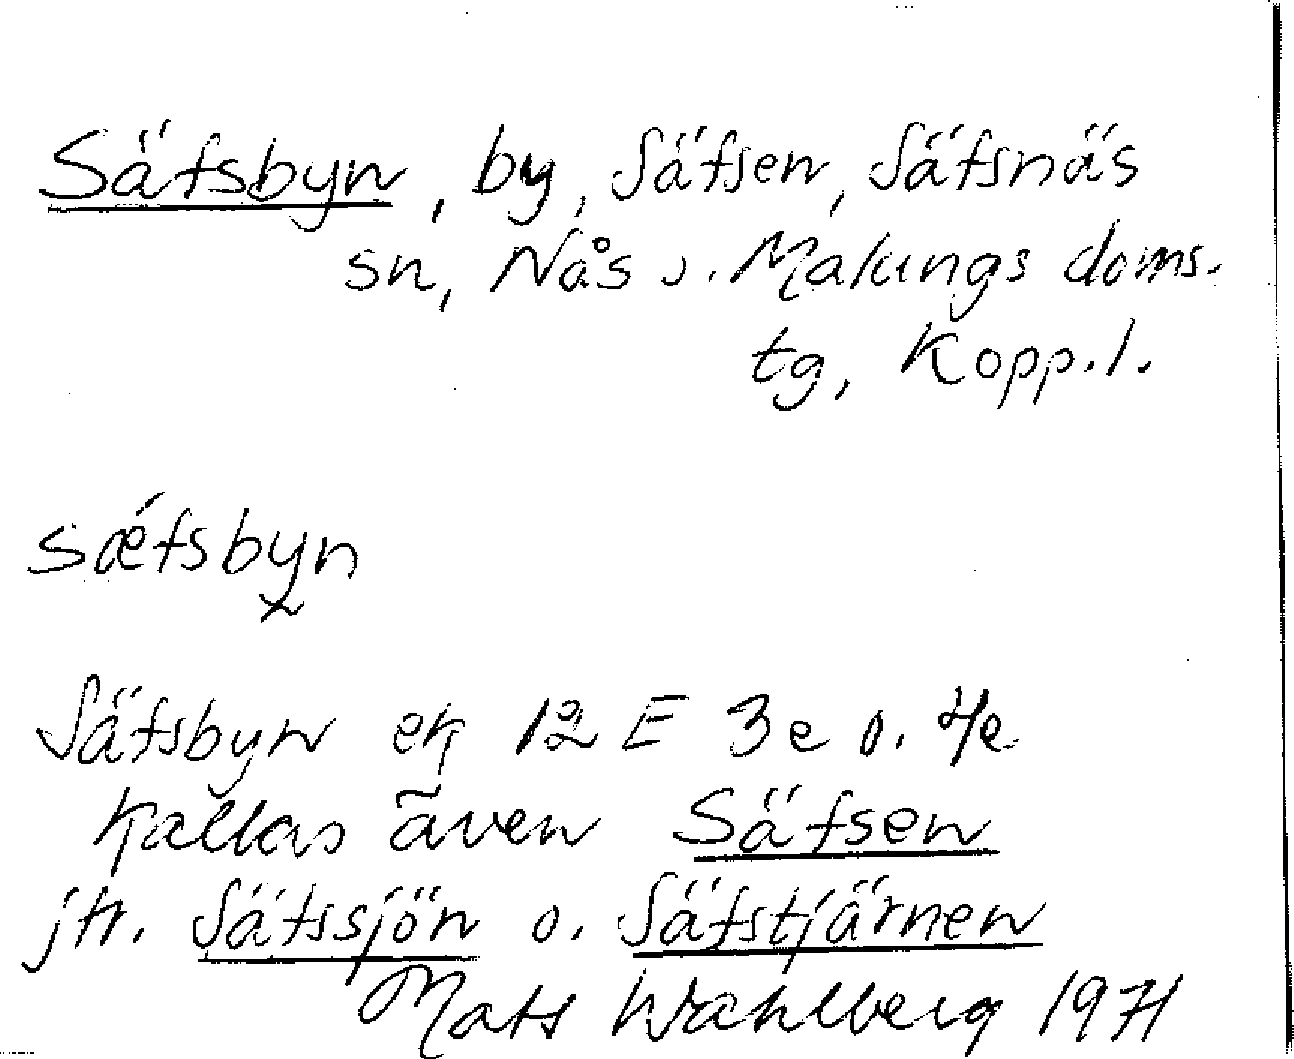 Säfsbyn, by, Säfsen, Säfsnäs
sn, Nås o. Malungs doms.
tg, Kopp.l.
sǽfsbyn
Säfsbyn ek 12 E 3e o. 4e
kallas även Säfsen
jfr. Säfssjön o. Säfstjärnen
Mats Wahlberg 1971